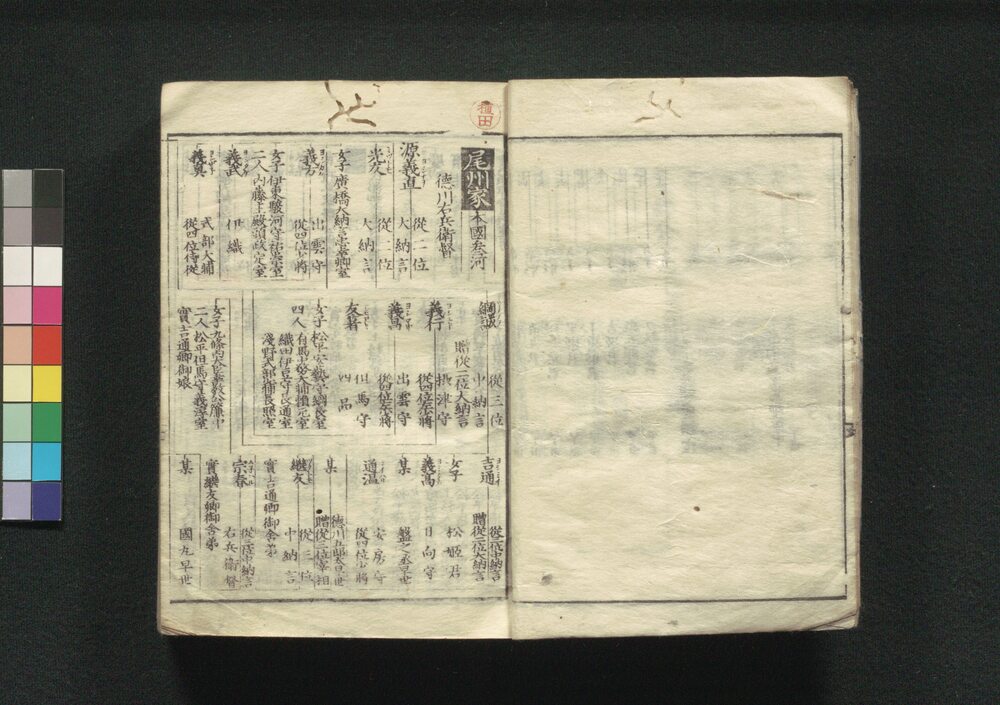 種田
尾州家 本國参河
徳川右兵衛督
源義直 従二位 大納言
光友 従二位 大納言
女子 廣橋大納言室
義方 出雲守 従四位少將
女子 伊東駿河守祐崇室
二人 内藤主殿頭政定室
義武 伊織
義真 式部大輔 従四位侍従
綱誠 従三位 中納言
贈従二位大納言
義行 摂津守 従四位少將
義昌 出雲守 従四位少將
友著 但馬守 四品
女子 松平安藝守綱長室
四人 有馬大輔室
織田伊豆守長通室
淺野式部少輔長照室
女子 九條内大臣
二人 松平但馬守義淳室
實吉通卿御娘
吉通 従三位中納言 贈従二位大納言
女子 松姫君
義高 日向守
某 盤之丞早世
通温 安房守 従四位少將
某 徳川五郎太早世
贈従三位宰相
継友 従三位 中納言
實吉通卿御舎弟
宗春 従三位中納言 右兵衛督
實継友卿御舎弟
某 國丸早世